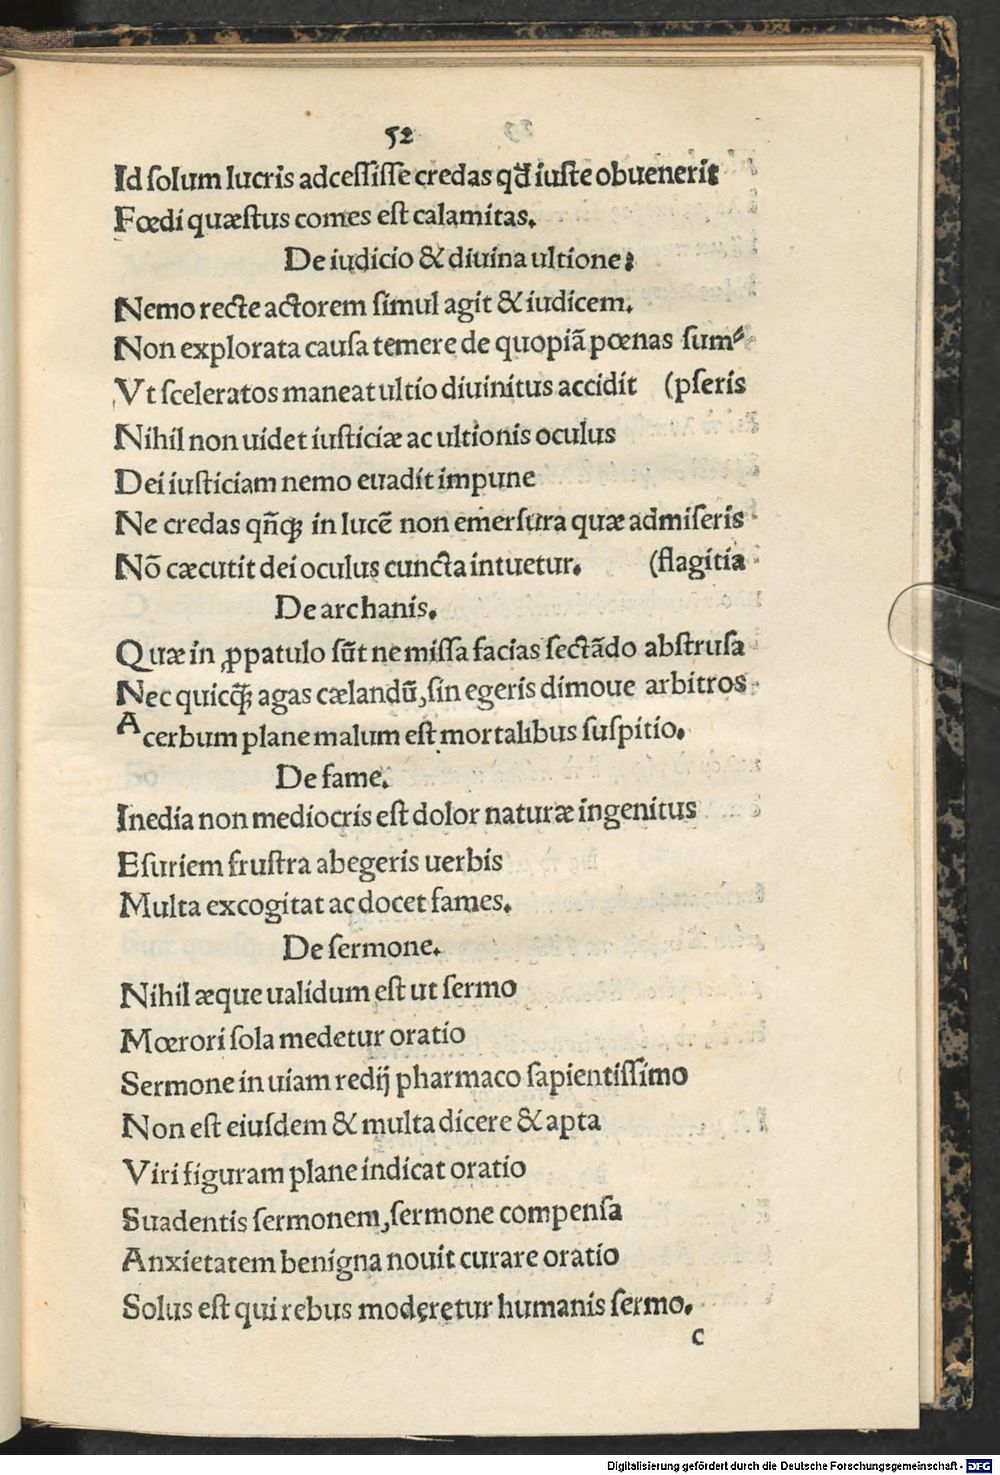 52
Id ſolum lucris adceſſiſſe credas qđ iuſte obuenerit
Fœdi quæſtus comes eſt calamitas.
De iudicio & diuina ultione:
Nemo recte actorem ſimul agit & iudicem.
Non explorata cauſa temere de quopiã pœnas ſum⸗
Vt ſceleratos maneat ultio diuinitus accidit (pſeris
Nihil non uidet iuſticiæ ac ultionis oculus
Dei iuſticiam nemo euadit impune
Ne credas qñcꝫ in lucẽ non emerſura quæ admiſeris
Nõ cæcutit dei oculus cuncta intuetur. (flagitia
De archanis.
Quæ in ꝓpatulo sũt ne miſſa facias ſectãdo abſtruſa
Nec quicꝗ̃ agas cælandũ, ſin egeris dimoue arbitros
Acerbum plane malum eſt mortalibus ſuſpitio.
De fame.
Inedia non mediocris eſt dolor naturæ ingenitus
Eſuriem fruſtra abegeris uerbis
Multa excogitat ac docet fames.
De ſermone.
Nihil æque ualidum eſt ut ſermo
Mœrori ſola medetur oratio
Sermone in uiam redij pharmaco ſapientiſſimo
Non eſt eiuſdem & multa dicere & apta
Viri figuram plane indicat oratio
Suadentis ſermonem, ſermone compenſa
Anxietatem benigna nouit curare oratio
Solus eſt qui rebus moderetur humanis ſermo.
c
Digitalisierung gefördert durch die Deutsche Forschungsgemeinschaft - DFG